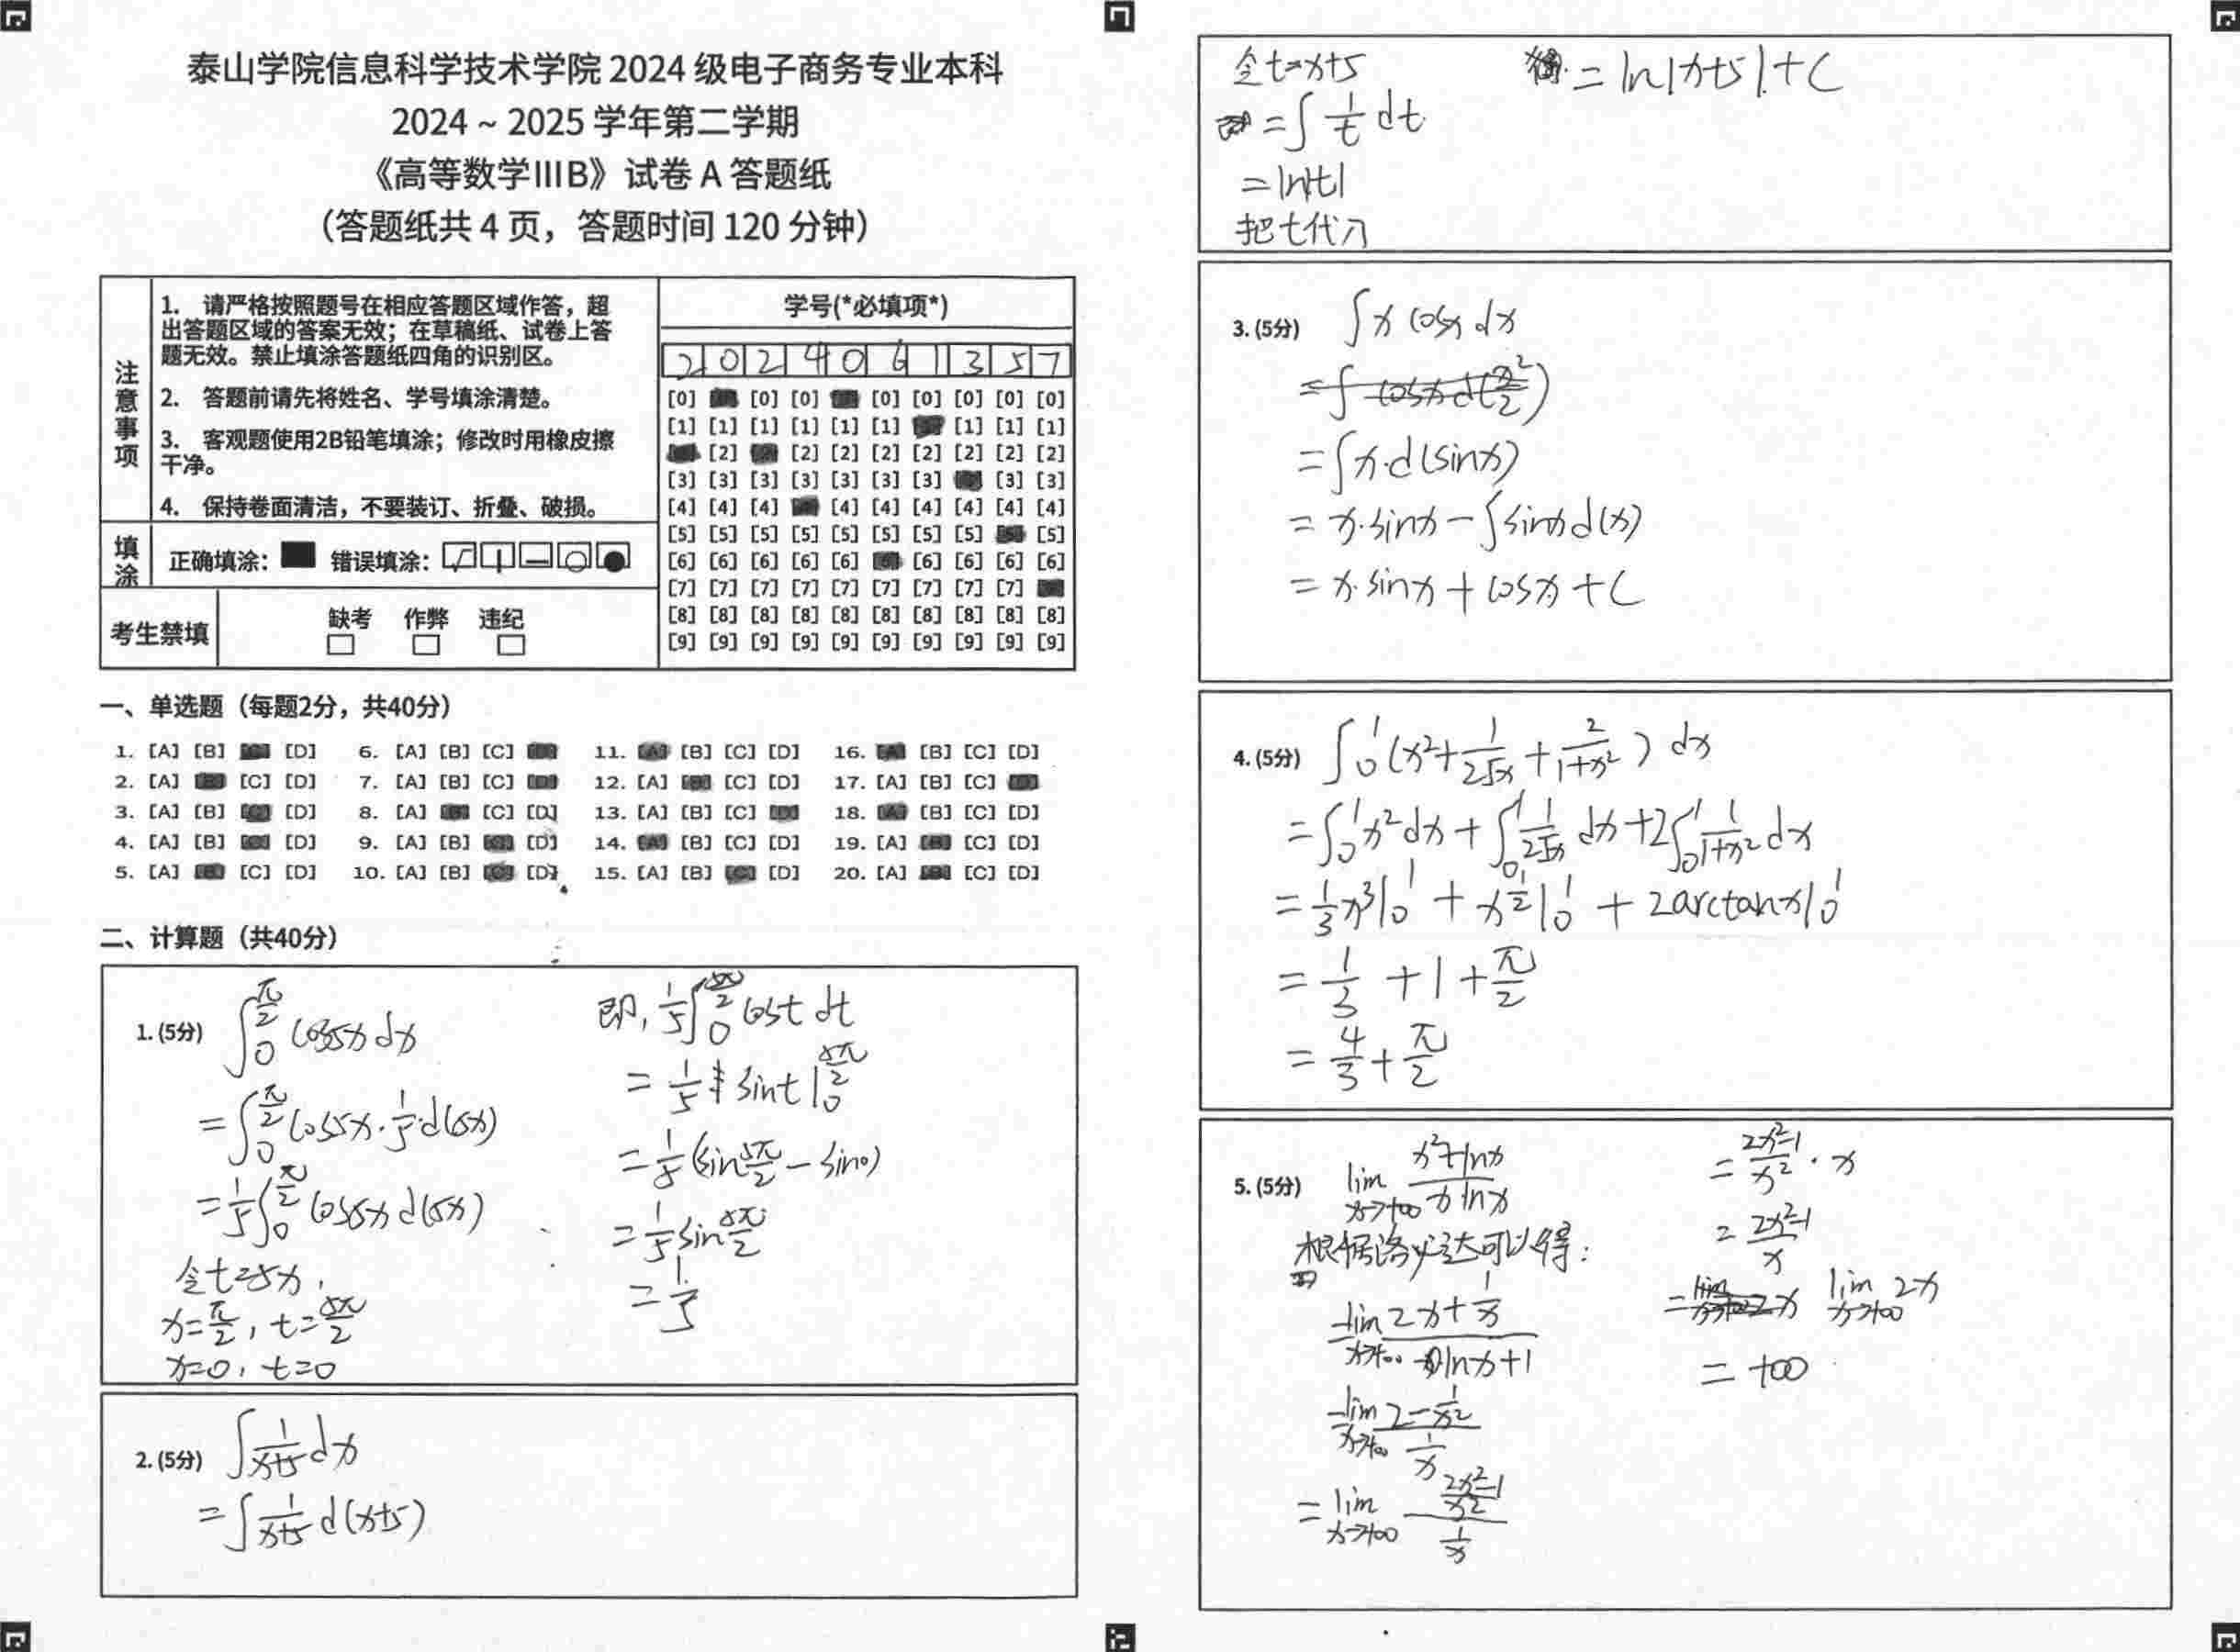 泰山学院信息科学技术学院 2024 级电子商务专业本科
2024 ~ 2025 学年第二学期
《高等数学ⅢB》试卷 A 答题纸
（答题纸共 4 页，答题时间 120 分钟）
注意事项
1. 请严格按照题号在相应答题区域作答，超
出答题区域的答案无效；在草稿纸、试卷上答
题无效。禁止填涂答题纸四角的识别区。
2. 答题前请先将姓名、学号填涂清楚。
3. 客观题使用2B铅笔填涂；修改时用橡皮擦
干净。
4. 保持卷面清洁，不要装订、折叠、破损。
填涂
正确填涂： 错误填涂：
考生禁填
缺考 作弊 违纪
学号(*必填项*)
2 0 2 4 0 6 1 3 5 7
[0] [0] [0] [0] [0] [0] [0] [0]
[1] [1] [1] [1] [1] [1] [1] [1] [1]
[2] [2] [2] [2] [2] [2] [2] [2]
[3] [3] [3] [3] [3] [3] [3] [3] [3]
[4] [4] [4] [4] [4] [4] [4] [4] [4]
[5] [5] [5] [5] [5] [5] [5] [5] [5]
[6] [6] [6] [6] [6] [6] [6] [6] [6]
[7] [7] [7] [7] [7] [7] [7] [7] [7]
[8] [8] [8] [8] [8] [8] [8] [8] [8] [8]
[9] [9] [9] [9] [9] [9] [9] [9] [9] [9]
一、单选题（每题2分，共40分）
1. [A] [B] [C] [D] 6. [A] [B] [C] [D] 11. [A] [B] [C] [D] 16. [A] [B] [C] [D]
2. [A] [B] [C] [D] 7. [A] [B] [C] [D] 12. [A] [B] [C] [D] 17. [A] [B] [C] [D]
3. [A] [B] [C] [D] 8. [A] [B] [C] [D] 13. [A] [B] [C] [D] 18. [A] [B] [C] [D]
4. [A] [B] [C] [D] 9. [A] [B] [C] [D] 14. [A] [B] [C] [D] 19. [A] [B] [C] [D]
5. [A] [B] [C] [D] 10. [A] [B] [C] [D] 15. [A] [B] [C] [D] 20. [A] [B] [C] [D]
二、计算题（共40分）
1. (5分) ∫₀^(π/2) cos5x dx
= ∫₀^(π/2) cos5x · 1/5 · d(5x)
= 1/5 ∫₀^(π/2) cos5x d(5x)
令t=5x，
x=π/2，t=5π/2
x=0，t=0
即，1/5 ∫₀^(5π/2) cost dt
= 1/5 sint |₀^(5π/2)
= 1/5 (sin 5π/2 − sin0)
= 1/5 sin 5π/2
= 1/5
2. (5分) ∫ 1/(x+5) dx
= ∫ 1/(x+5) d(x+5)
令t=x+5
= ∫ 1/t dt
= ln|t|
把t代入
= ln|x+5|+C
3. (5分) ∫ x cosx dx
= ∫ cosx d(x²/2)
= ∫ x·d(sinx)
= x·sinx − ∫ sinx d(x)
= x·sinx + cosx + C
4. (5分) ∫₀¹ (x² + 1/(2√x) + 2/(1+x²)) dx
= ∫₀¹ x² dx + ∫₀¹ 1/(2√x) dx + 2∫₀¹ 1/(1+x²) dx
= 1/3 x³|₀¹ + x^(1/2)|₀¹ + 2arctanx|₀¹
= 1/3 + 1 + π/2
= 4/3 + π/2
5. (5分) lim x→+∞ (x²+lnx)/(x lnx)
根据洛必达可以得：
= lim x→+∞ (2x + 1/x)/(lnx+1)
= lim x→+∞ (2 − 1/x²)/(1/x)
= lim x→+∞ ((2x²−1)/x²)/(1/x)
= (2x²−1)/x² · x
= (2x²−1)/x
= lim x→+∞ 2x
= +∞